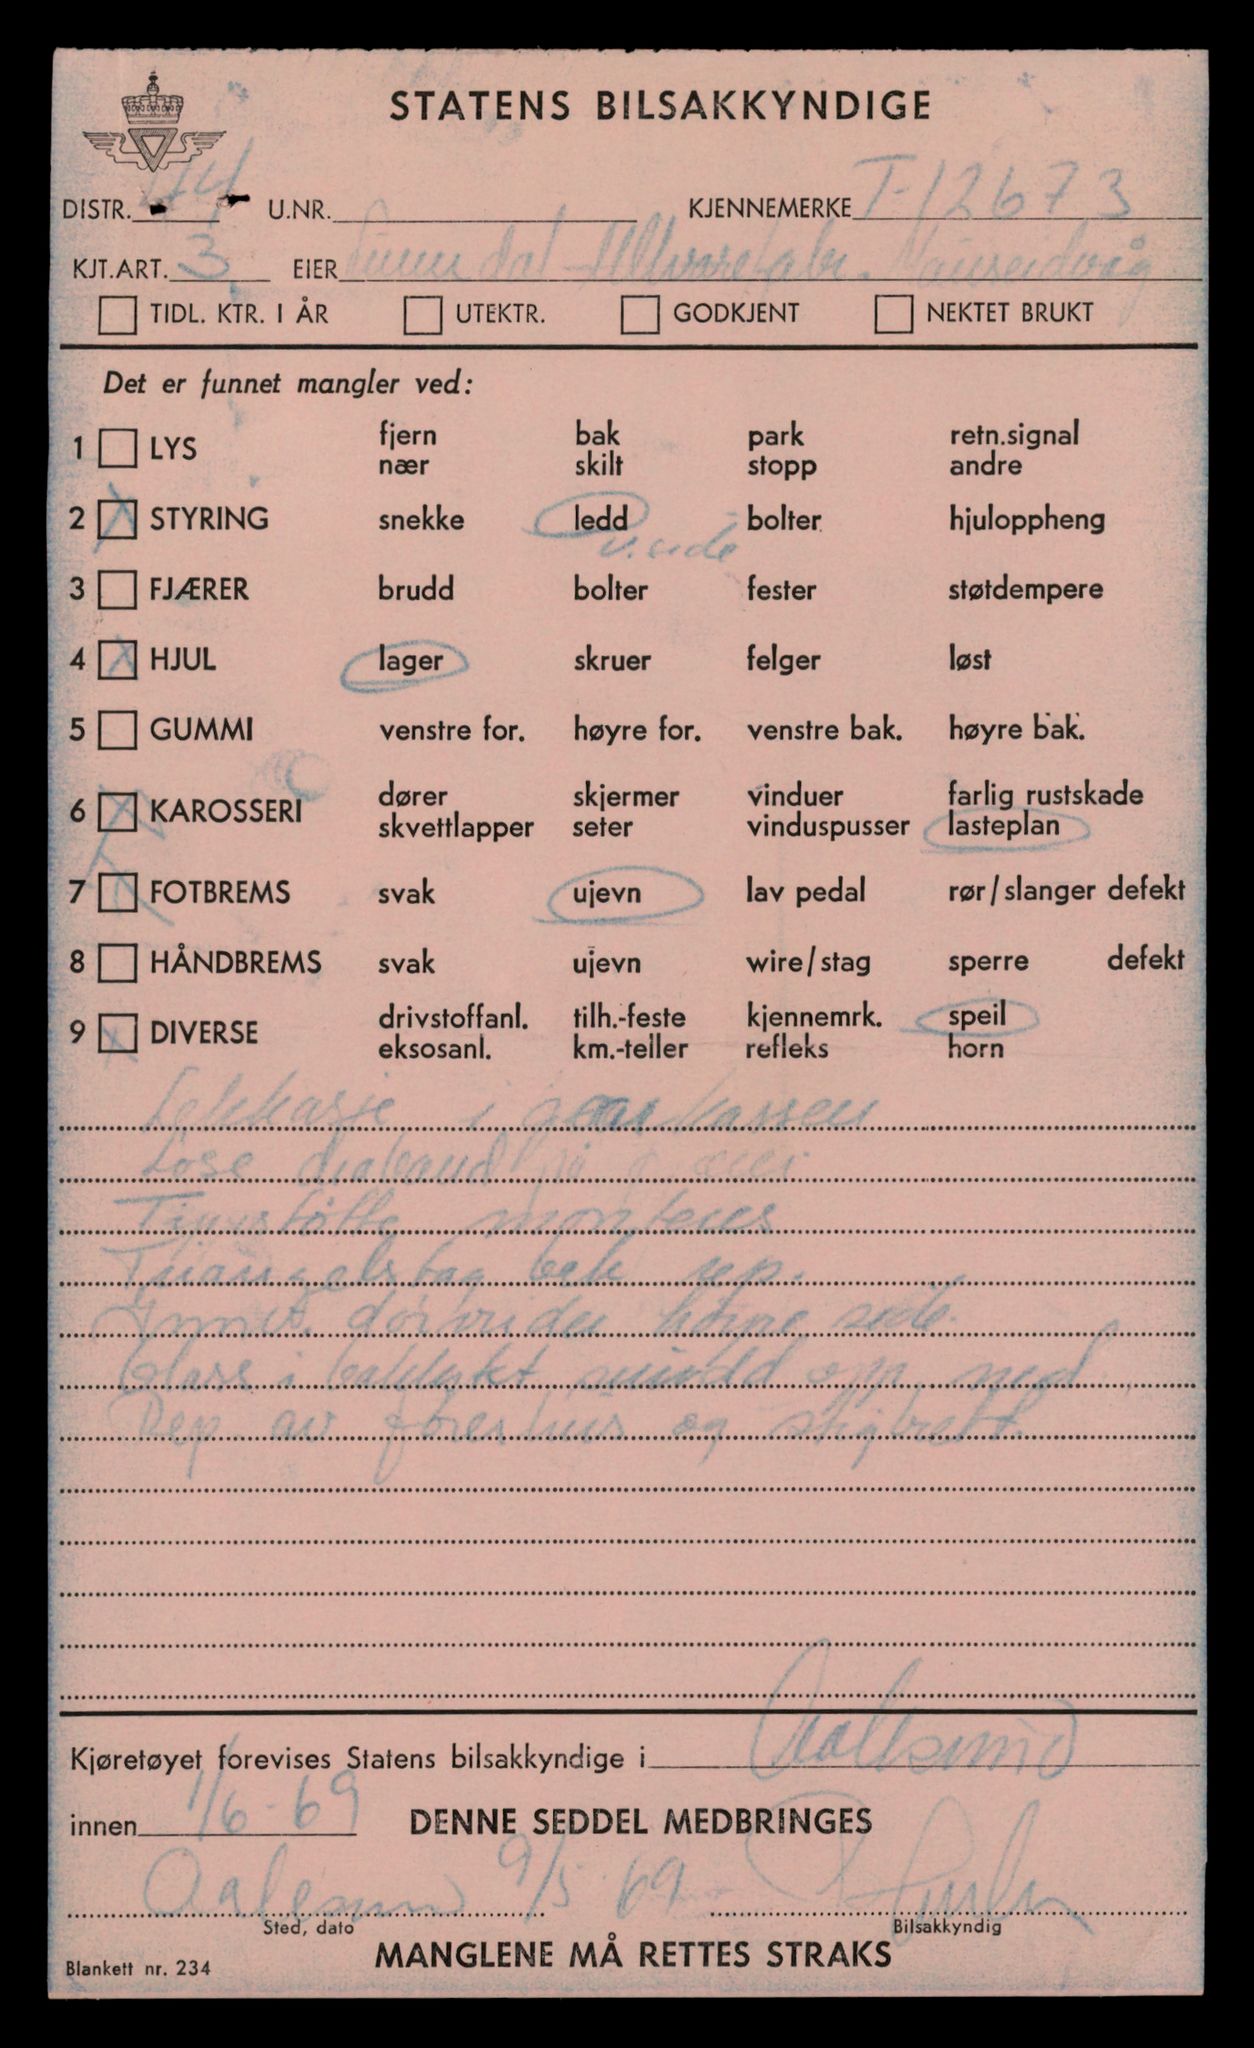 STATENS BILSAKKYNDIGE
DISTR. 44 U.NR. KJENNEMERKE T-12673
KJT.ART. 3 EIER
TIDL. KTR. I ÅR UTEKTR. GODKJENT NEKTET BRUKT
Det er funnet mangler ved:
1 LYS fjern bak park retn.signal
nær skilt stopp andre
2 STYRING snekke ledd bolter hjuloppheng
v. side
3 FJÆRER brudd bolter fester støtdempere
4 HJUL lager skruer felger løst
5 GUMMI venstre for. høyre for. venstre bak. høyre bak.
6 KAROSSERI dører skjermer vinduer farlig rustskade
skvettlapper seter vinduspusser lasteplan
7 FOTBREMS svak ujevn lav pedal rør/slanger defekt
8 HÅNDBREMS svak ujevn wire/stag sperre defekt
9 DIVERSE drivstoffanl. tilh.-feste kjennemrk. speil
eksosanl. km.-teller refleks horn
Lekkasje i gearkassen
Løse
monteres
Triangelstag rep.
høyre side.
Glass i baklykt opp ned
Rep. av førerhus og stigbrett.
Kjøretøyet forevises Statens bilsakkyndige i Aalesund
innen 1/6-69 DENNE SEDDEL MEDBRINGES
Aalesund 9/5-69
Sted, dato Bilsakkyndig
MANGLENE MÅ RETTES STRAKS
Blankett nr. 234